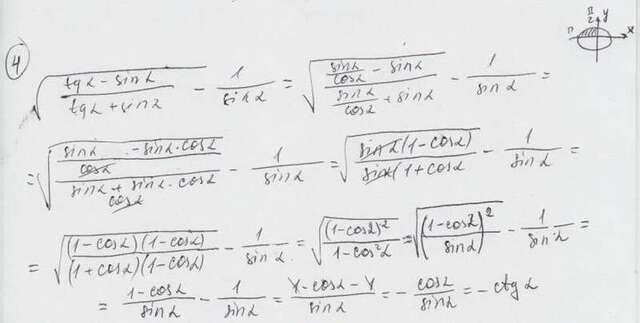 π/2 y
π x
4
√((tg α - sin α)/(tg α + sin α)) - 1/sin α = √((sin α/cos α - sin α)/(sin α/cos α + sin α)) - 1/sin α =
= √(((sin α - sin α · cos α)/cos α)/((sin α + sin α · cos α)/cos α)) - 1/sin α = √((sin α (1 - cos α))/(sin α (1 + cos α)) - 1/sin α =
= √(((1 - cos α)(1 - cos α))/((1 + cos α)(1 - cos α))) - 1/sin α = √((1 - cos α)²/(1 - cos² α)) = √(((1 - cos α)/sin α)²) - 1/sin α =
= (1 - cos α)/sin α - 1/sin α = (1 - cos α - 1)/sin α = - cos α/sin α = - ctg α